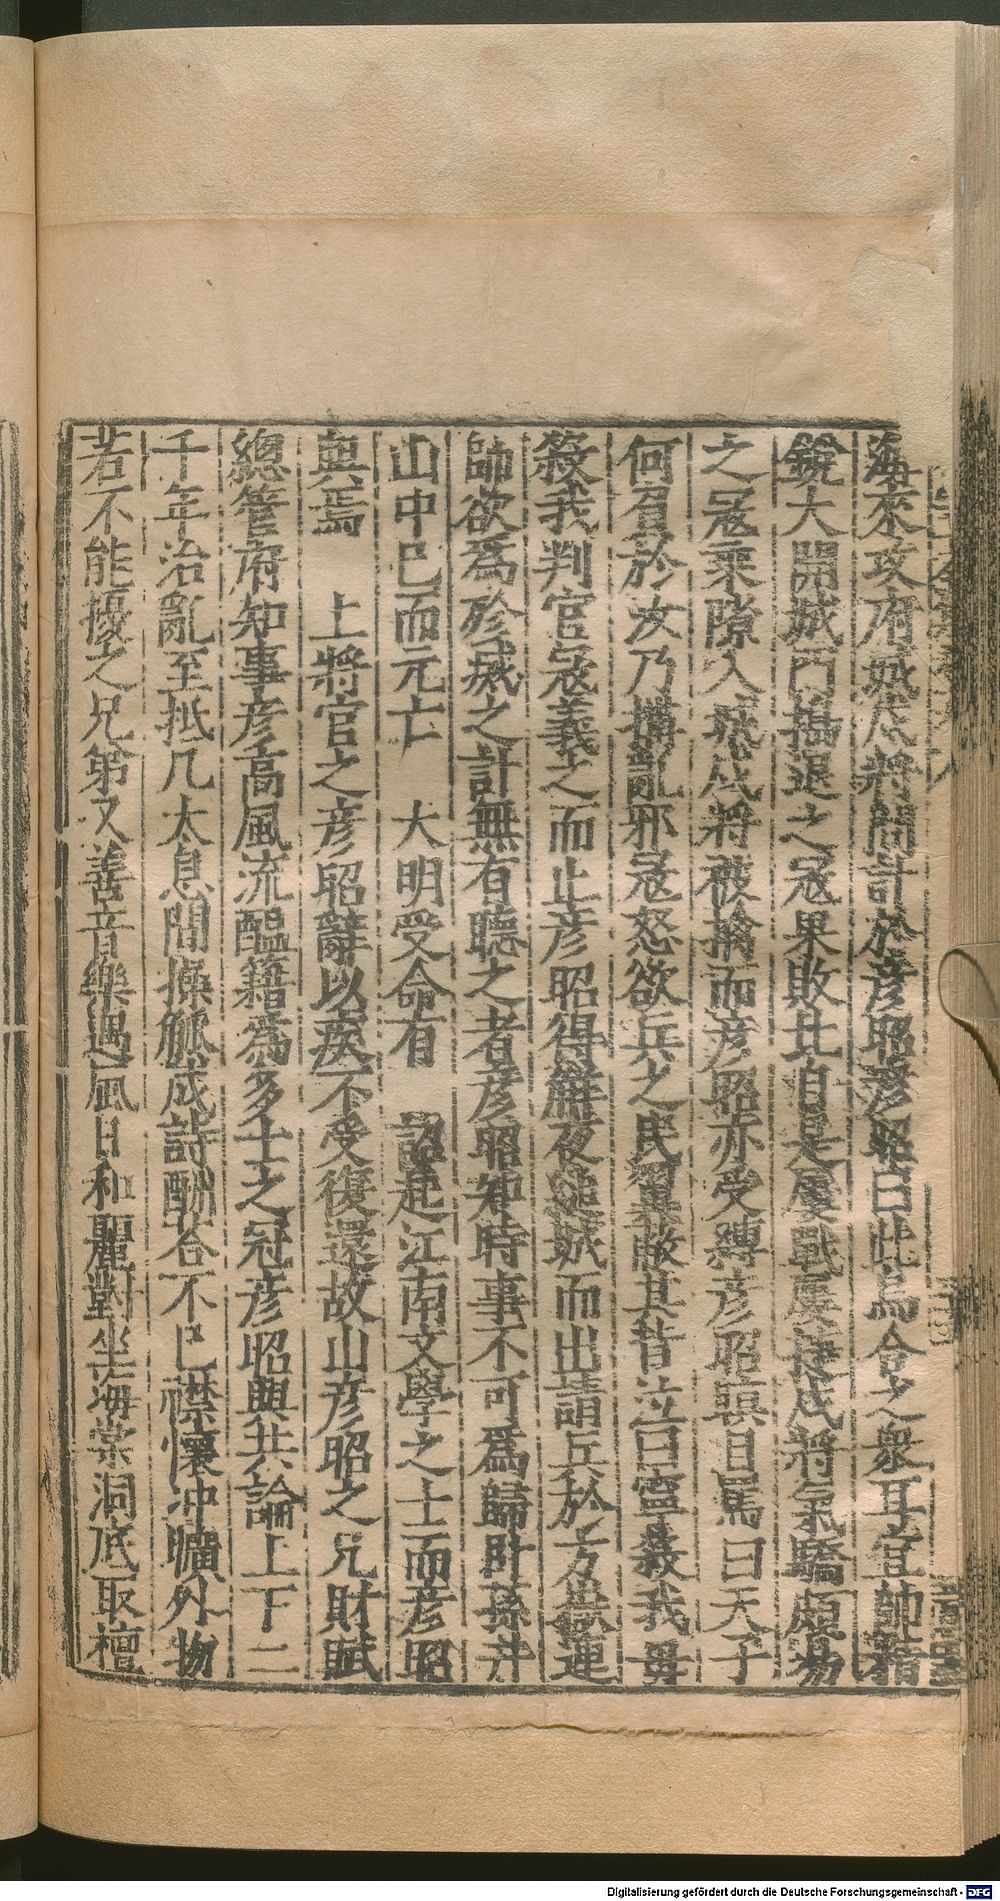 海來攻府城戍將問計於彦昭彦昭曰此烏合之衆耳宜帥精
銳大開城門搗退之寇果敗北自是屢戰屢捷戍將氣驕頗昜
之寇乘隙入城戍將被擒而彦昭亦受縛彦昭瞋目罵曰天子
何負於汝乃搆亂邪寇怒欲兵之民翼蔽其昔泣曰寧殺我毋
殺我判官寇義之而止彦昭得觧夜縋城而出請兵於方嶽連
帥欲爲殄滅之計無有聽之者彦昭知時事不可爲歸卧蓀井
山中已而元亡　大明受命有　詔起江南文學之士而彦昭
與焉　上將官之彦昭辭以疾不受復還故山彦昭之兄財賦
緫管府知事彦高風流醖籍爲多士之冠彦昭與共論上下二
千年治亂至抵几太息間操觚成詩酬荅不已襟懷冲曠外物
若不能擾之兄第又善音樂遇風日和麗對坐海棠洞底取檀
Digitalisierung gefördert durch die Deutsche Forschungsgemeinschaft - DFG